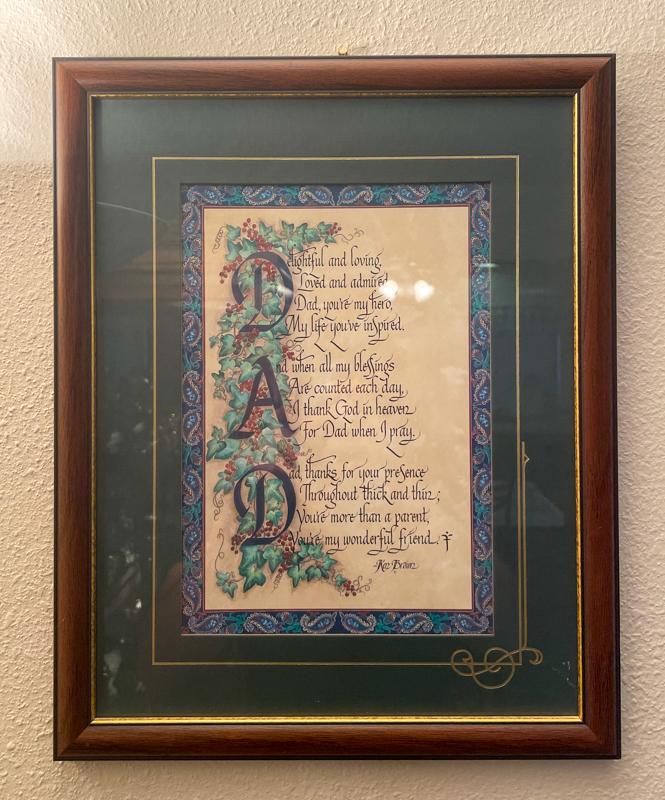 Delightful and loving,
Loved and admired
Dad, you're my hero,
My life you've inspired.
And when all my blessings
Are counted each day,
I thank God in heaven
For Dad when I pray.
Dad, thanks for your presence
Throughout thick and thin;
You're more than a parent,
You're my wonderful friend.
-Roz Brown